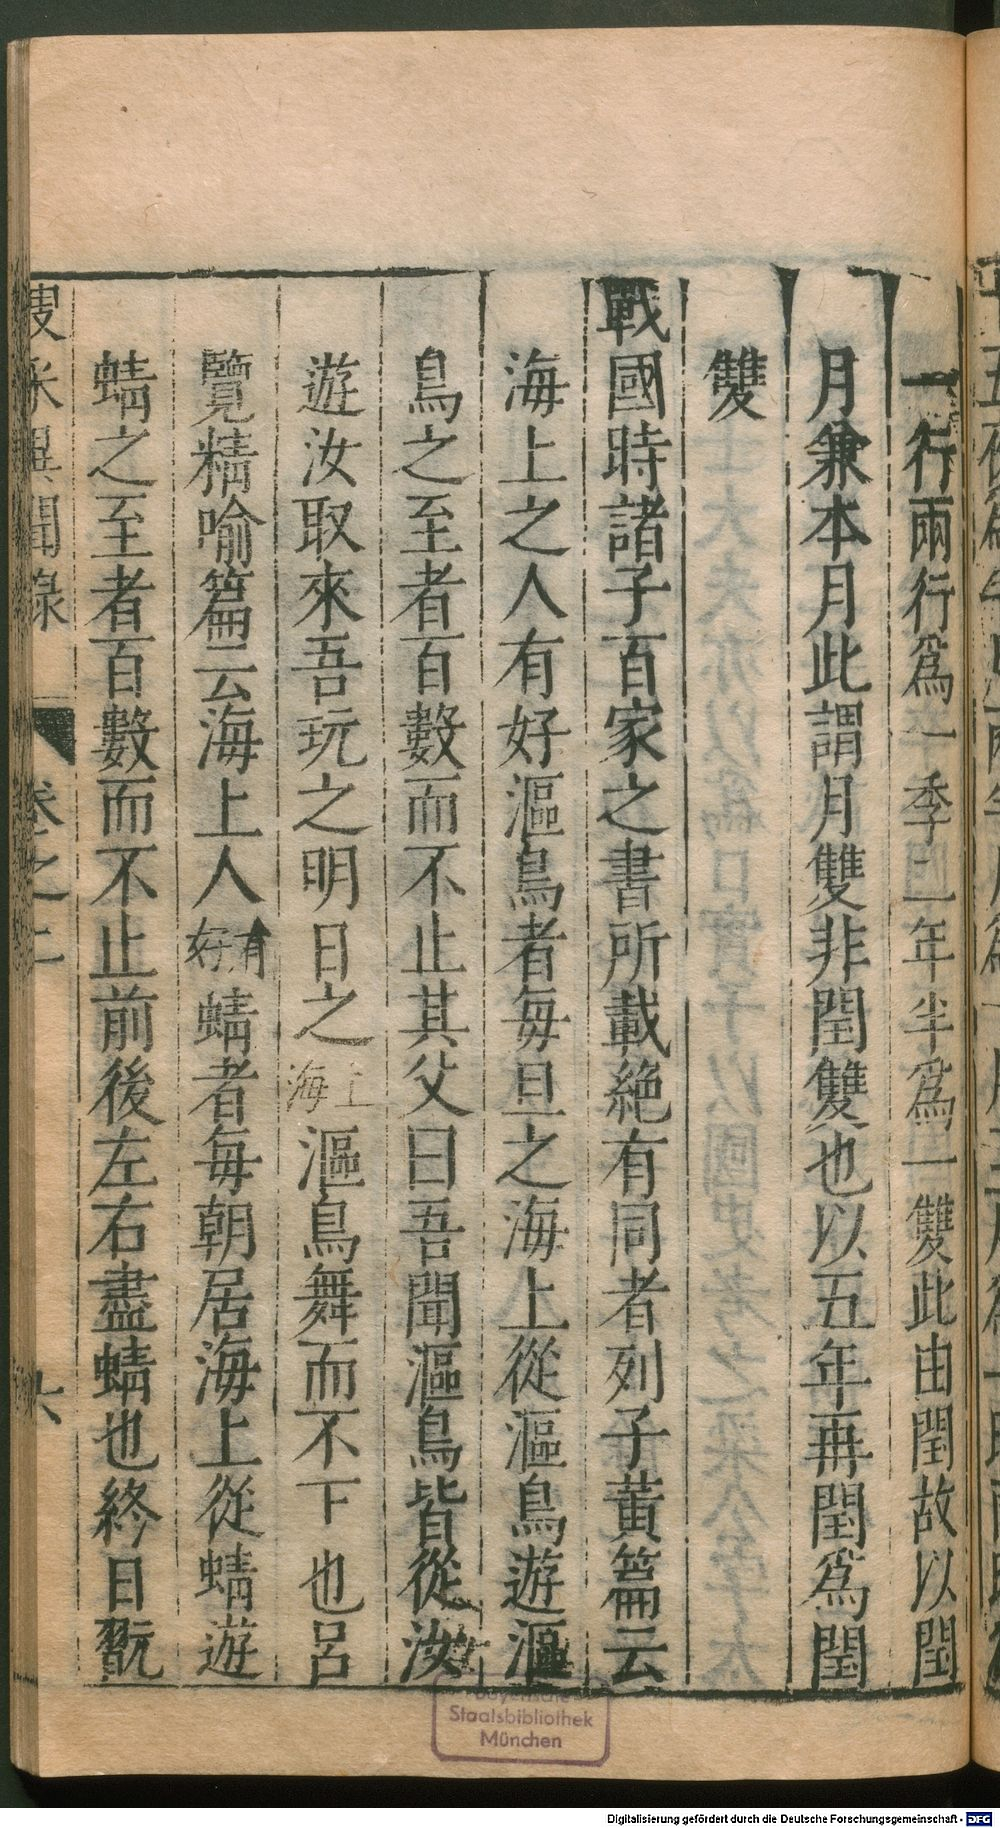 一行兩行爲一季二年半爲一雙此由閏故以閏
月兼本月此謂月雙非閏雙也以五年再閏爲閏
雙
戰國時諸子百家之書所載絶有同者列子黃篇云
海上之人有好漚鳥者每旦之海上從漚鳥遊漚
鳥之至者百數而不止其父曰吾聞漚鳥皆從汝
遊汝取來吾玩之明日之海上漚鳥舞而不下也呂
覽精喻篇云海上人有好蜻者每朝居海上從蜻遊
蜻之至者百數而不止前後左右盡蜻也終日翫
搜采異聞錄 卷之二 六
Bayerische
Staatsbibliothek
München
Digitalisierung gefördert durch die Deutsche Forschungsgemeinschaft - DFG